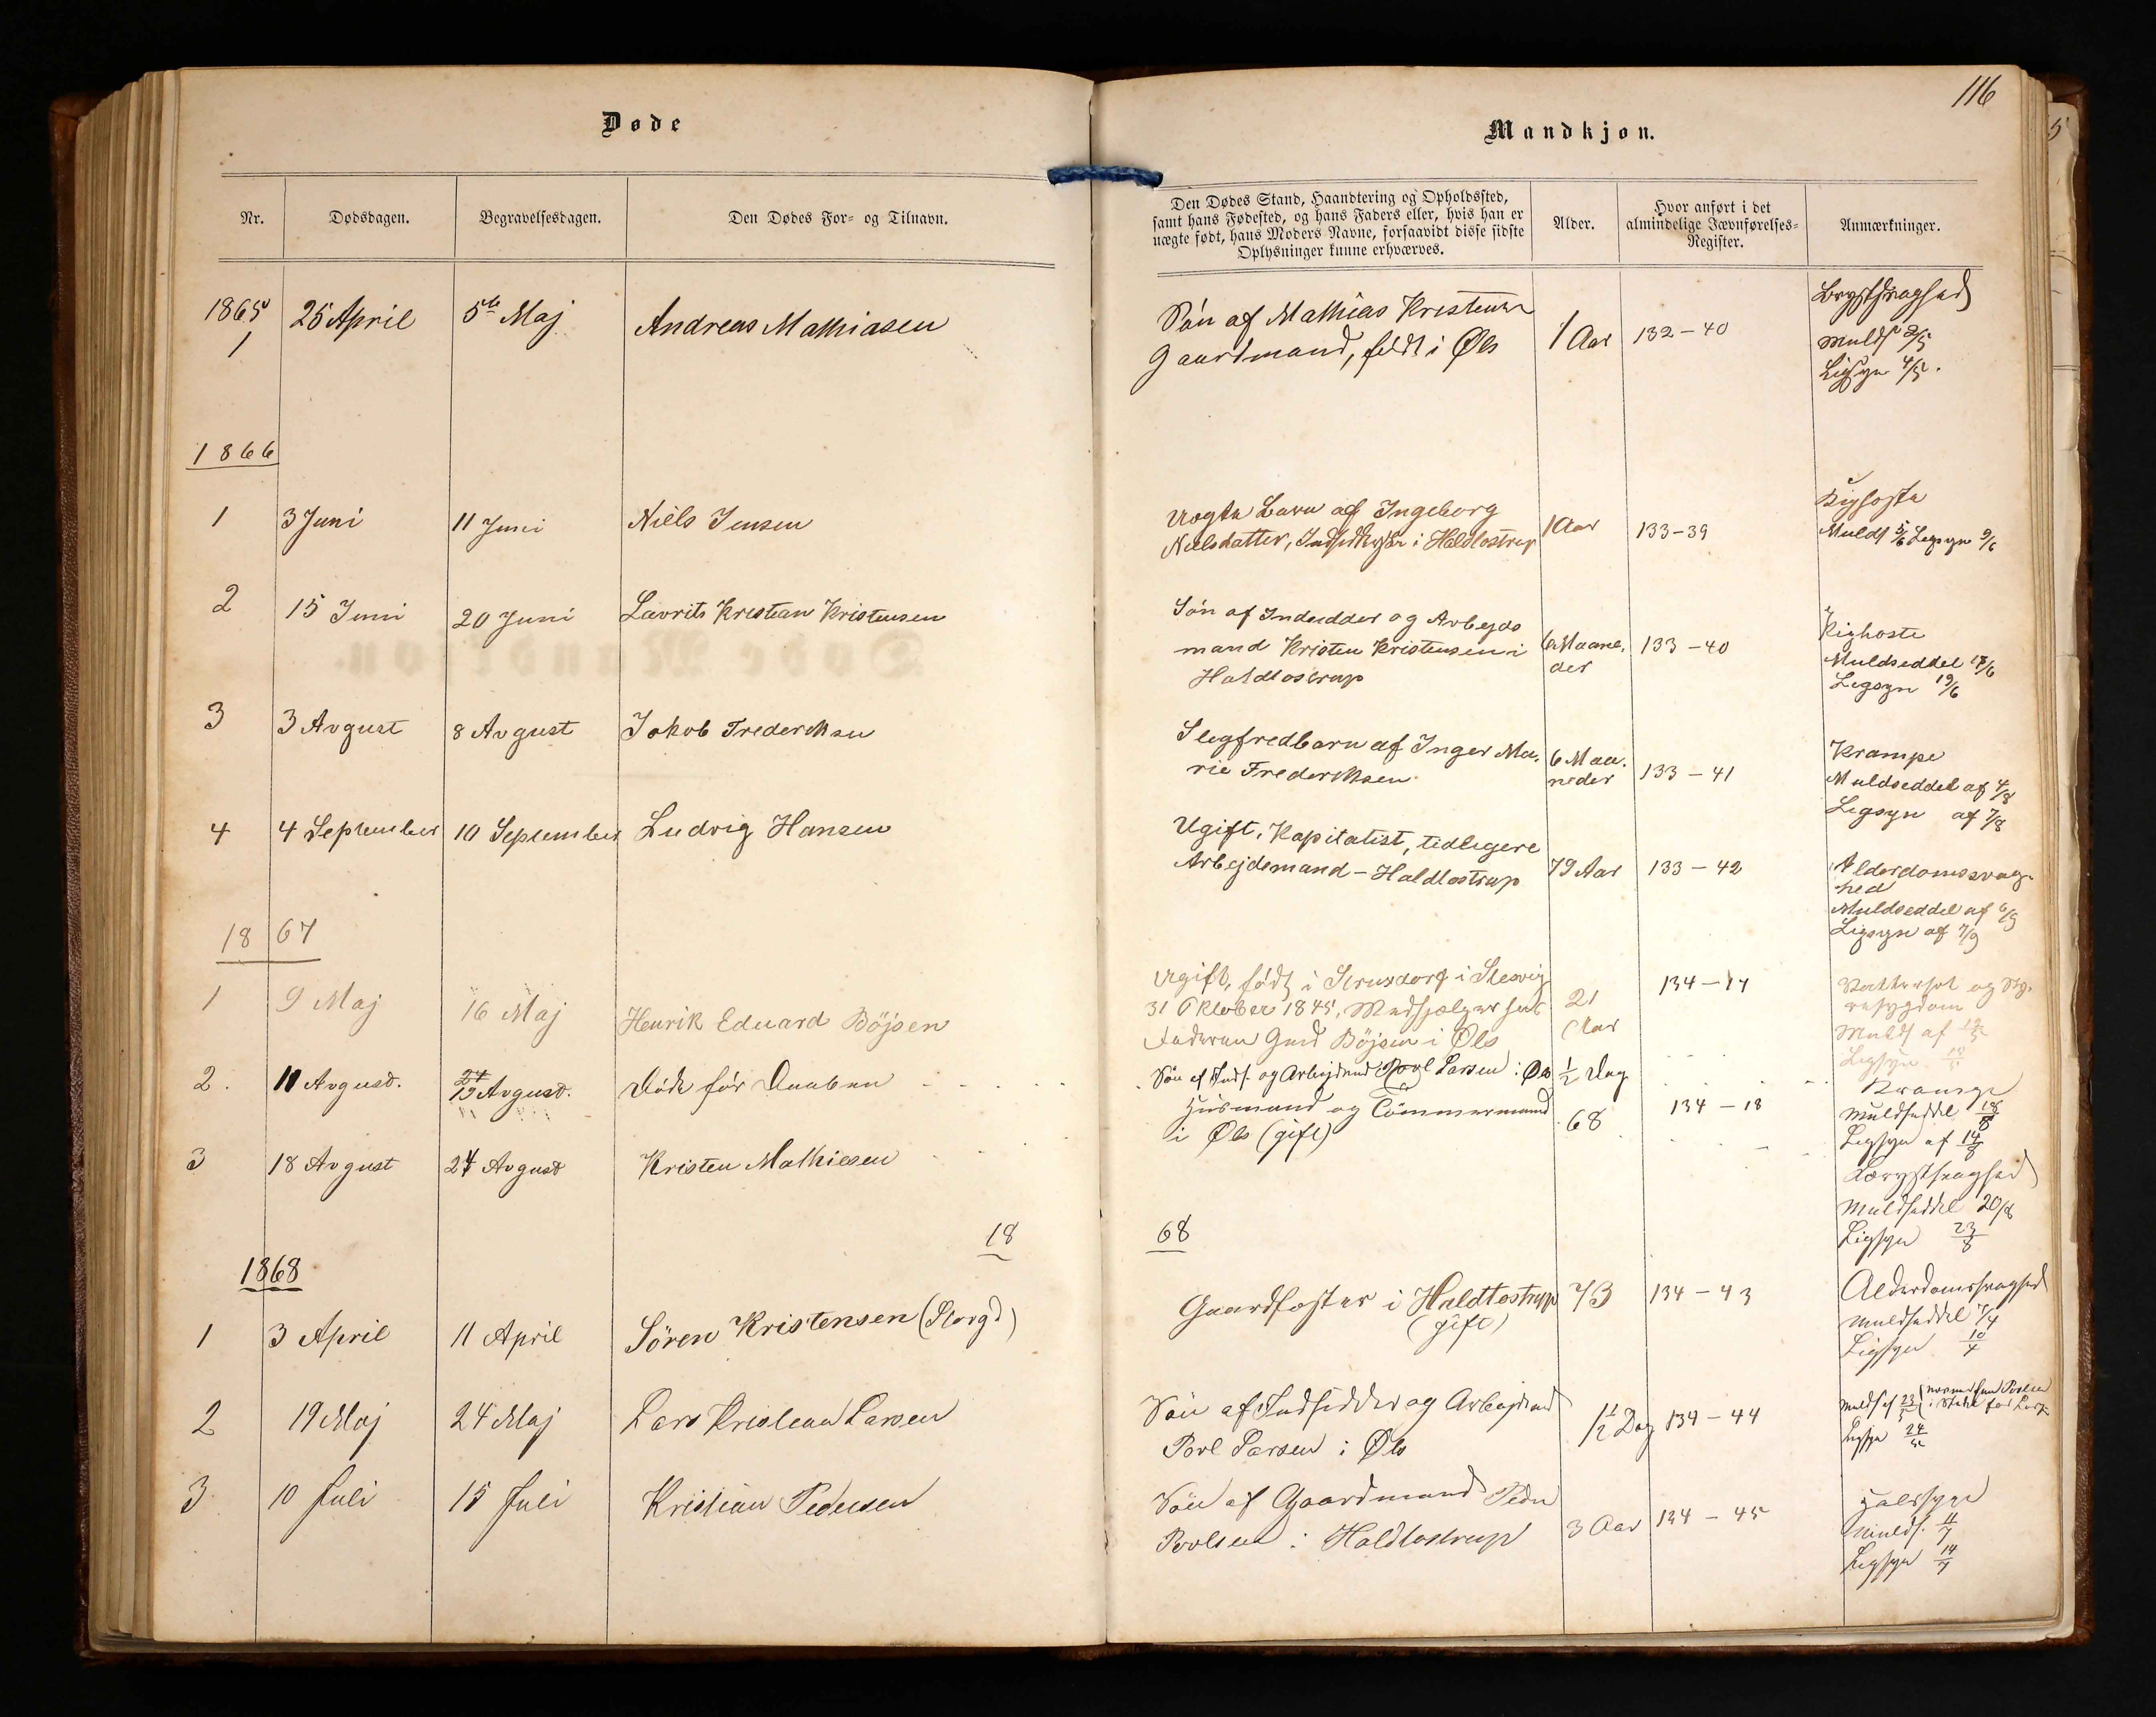 116
Døde
Mandkjøn.
Nr.
Dødsdagen.
Begravelsesdagen.
Den Dødes For- og Tilnavn.
Den Dødes Stand, Haandtering og Opholdssted,
samt hans Fødested, og hans Faders eller, hvis han er
uægte født, hans Moders Navne, forsaavidt disse sidste
Oplysninger kunne erhværves.
Alder.
Hvor anført i det
almindelige Jævnførelses-
Register.
Anmærkninger.
1865
1
25 April
5te Maj
Andreas Mathiasen
Søn af Mathias Kristensen
Gaardmand, født i Øls
1 Aar
132-40
Brystsvaghed
Mulds 2/5
Ligsyn 4/5.
1866
1
3 Juni
11 Juni
Niels Jensen
Uægte Barn af Ingeborg
Nielsdatter, i Haldtostrup
1 Aar
133-39
Kighoste
Mulds 5/6 Ligsyn 9/6
2
15 Juni
20 Juni
Lavrits Kristian Kristensen
Søn af Indsidder og Arbejds
mand Kristen Kristensen i
Haldtostrup
6 Maane-
der
133-40
Kighoste
Muldseddel 17/6
Ligsyn 19/6
3
3 Avgust
8 Avgust
Jakob Frederiksen
Slegfredbarn af Inger Ma-
rie Frederiksen
6 Maa-
neder
133-41
Krampe
Muldseddel af 4/8
Ligsyn af 7/8
4
4 September
10 September
Ludvig Hansen
Ugift, Kapitalist, tidligere
Arbejdsmand - Haldtostrup
79 Aar
133-42
Alderdomssvag-
hed
Muldseddel af 6/9
Ligsyn af 7/9
1867
1
9 Maj
16 Maj
Henrik Eduard Böjsen
Ugift, født i Strusdorf i Slesvig
31 Oktober 1845, Medhjælper hos
Faderen Böjsen i Øls
21
Aar
134-17
og
Mulds af
Ligsyn
2.
11 Avgust.
Avgust.
Døde før Daaben
Søn af Inds. og Arbejdsmd Povl Larsen i Øls
1/2 Dag
Krampe
Muldseddel
Ligsyn af 14/8
3
18 Avgust
24 Avgust
Kristen Mathiesen
Husmand og Tømmermand
i Øls (gift)
68
134-18
Brystsvaghed
Muldseddel 20/8
Ligsyn 23/8
18
68
1868
1
3 April
11 April
Sören Kristensen (Storgd)
Gaardfoster i Haldtostrup
(gift)
73
134-43
Alderdomssvaghed
Muldseddel
Ligsyn 10/4
2
19 Maj
24 Maj
Lars Kristian Larsen
Søn af Indsidder og Arbejdsmd
Povl Larsen i Øls
1 1/2 Dag
134-44
Mulds af 23/5
Ligsyn 24/5
3
10 Juli
15 Juli
Kristian Pedersen
Søn af Gaardmand Peder
Povlsen i Haldtostrup
3 Aar
134-45
Halssyge
Mulds. 11/7
Ligsyn 14/7